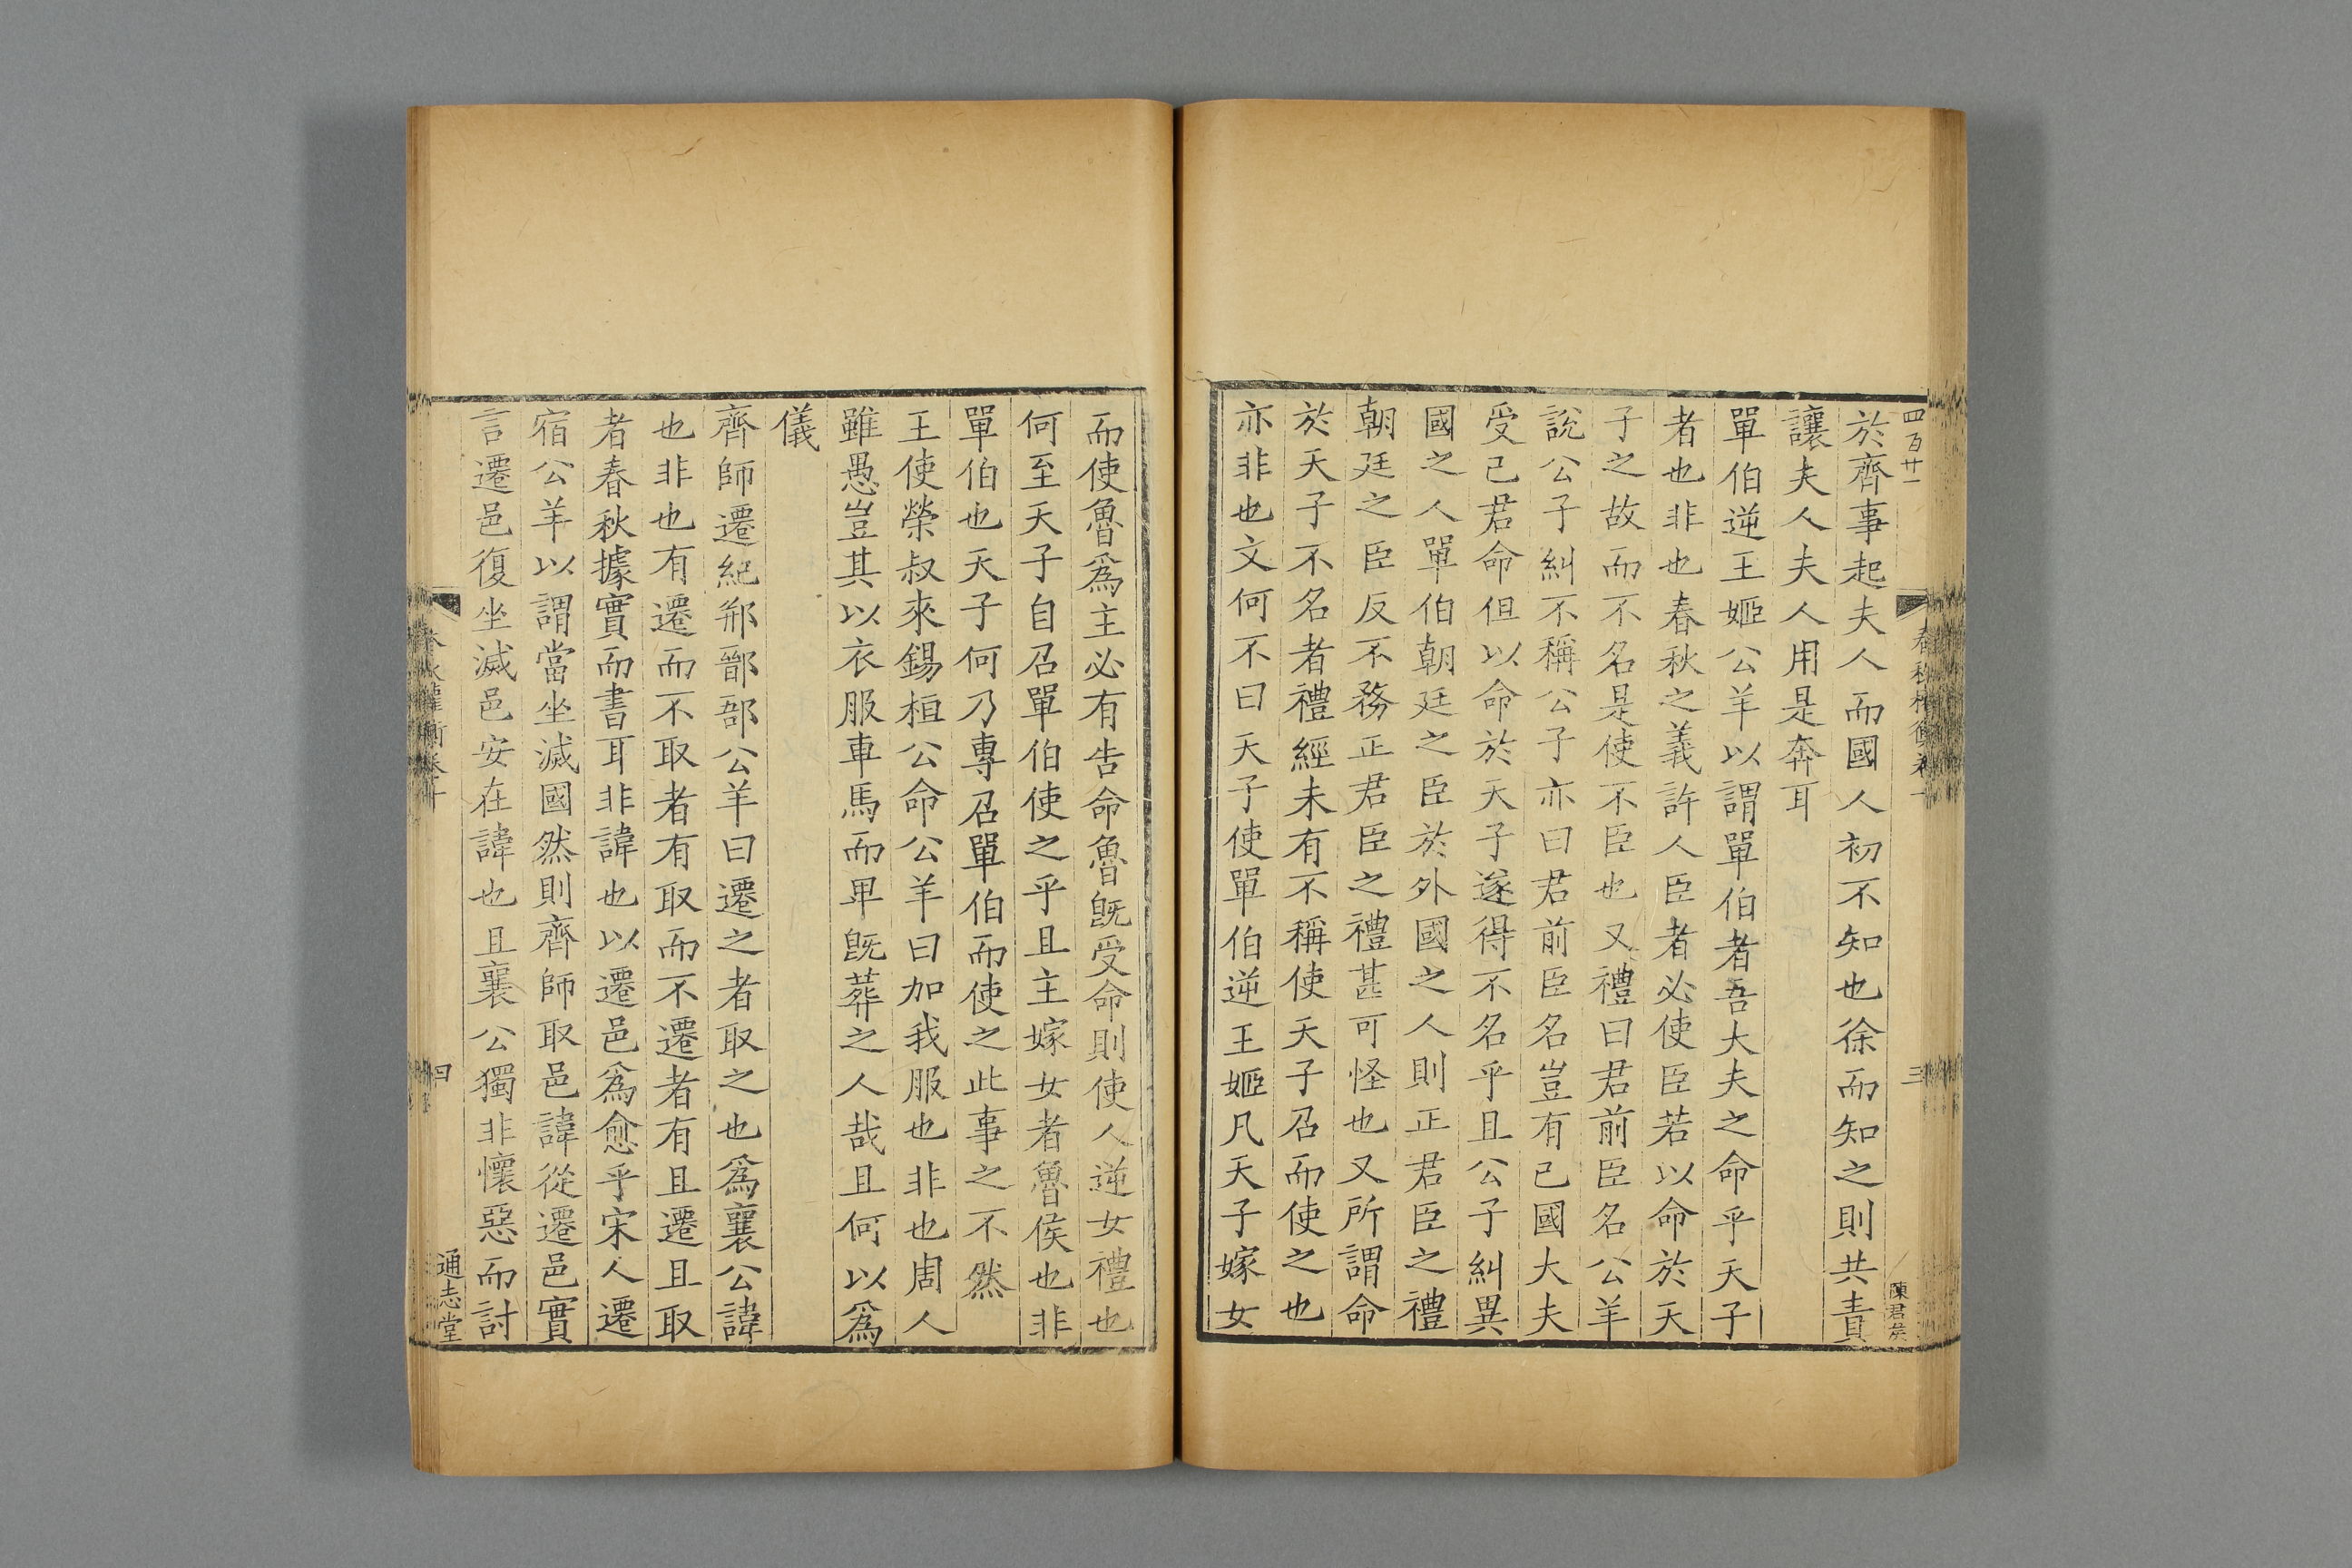 四百廿一
春秋權衡卷十
三
陳君侯
於齊事起夫人而國人初不知也徐而知之則共責
讓夫人夫人用是奔耳
單伯逆王姬公羊以謂單伯者吾大夫之命乎天子
者也非也春秋之義許人臣者必使臣若以命於天
子之故而不名是使不臣也又禮曰君前臣名公羊
說公子糾不稱公子亦曰君前臣名豈有已國大夫
受己君命但以命於天子遂得不名乎且公子糾異
國之人單伯朝廷之臣於外國之人則正君臣之禮
朝廷之臣反不務正君臣之禮甚可怪也又所謂命
於天子不名者禮經未有不稱使天子召而使之也
亦非也文何不曰天子使單伯逆王姬凡天子嫁女
而使魯爲主必有告命魯旣受命則使人逆女禮也
何至天子自召單伯使之乎且主嫁女者魯侯也非
單伯也天子何乃專召單伯而使之此事之不然
王使榮叔來錫桓公命公羊曰加我服也非也周人
雖愚豈其以衣服車馬而畀旣葬之人哉且何以爲
儀
齊師遷紀郱鄑郚公羊曰遷之者取之也爲襄公諱
也非也有遷而不取者有取而不遷者有且遷且取
者春秋據實而書耳非諱也以遷邑爲愈乎宋人遷
宿公羊以謂當坐滅國然則齊師取邑諱從遷邑實
言遷邑復坐滅邑安在諱也且襄公獨非懷惡而討
春秋權衡卷十
四
通志堂